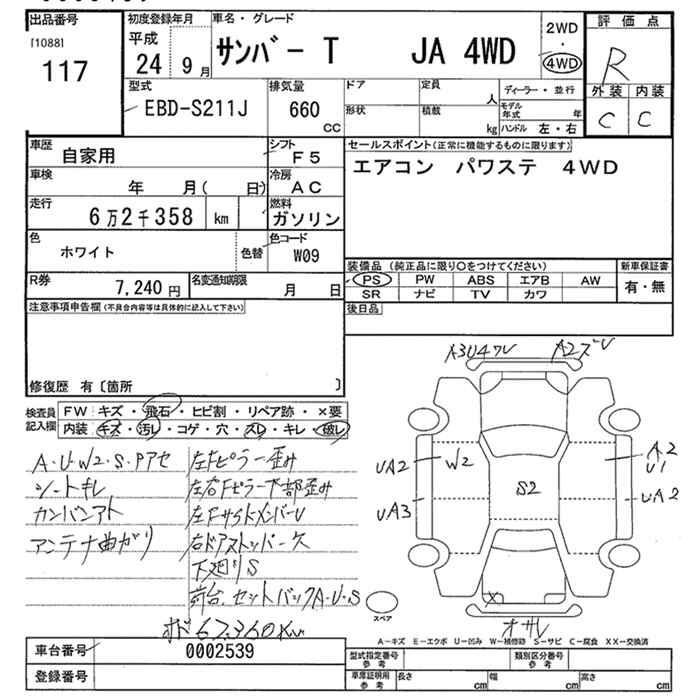 出品番号
[1088]
117
初度登録年月
平成
24 9月
車名・グレード
サンバー T JA 4WD
2WD
・
4WD
評価点
R
外装 内装
C C
型式
EBD-S211J
排気量
660
CC
ドア
形状
定員
人
積載
kg
ディーラー・並行
モデル年式 年
ハンドル 左・右
車歴
自家用
シフト
F5
車検
年 月( 日)
冷房
AC
走行
6万2千358 km
燃料
ガソリン
色
ホワイト
色替
色コード
W09
R券
7,240円
名変通知期限
月 日
セールスポイント(正常に機能するものに限ります)
エアコン パワステ 4WD
装備品 (純正品に限り○をつけてください)
PS PW ABS エアB AW
SR ナビ TV カワ
新車保証書
有・無
後日品
注意事項申告欄(不具合内容等は具体的に記入して下さい)
修復歴 有〔箇所 〕
検査員
記入欄
FW キズ・飛石・ヒビ割・リペア跡・×要
内装 キズ・汚レ・コゲ・穴・スレ・キレ・破レ
A・U・W2・S・Pアセ
シートキレ
カンバンアト
アンテナ曲ガリ
左Fピラー歪み
左右Fピラー下部歪み
左FサイドメンバーU
右ドアストッパーズ
下廻りS
荷台.セットバックA・U・S
オド 67.360km
A3U4ワレ A2ズレ
UA2 W2 A2
U1
S2
UA3 UA2
X
オサレ
スペア
A-キズ E-エクボ U-凹み W-補修跡 S-サビ C-腐食 XX-交換済
車台番号
0002539
登録番号
型式指定番号
参考
類別区分番号
参考
車庫証明用
参考
長さ cm 幅 cm 高さ cm